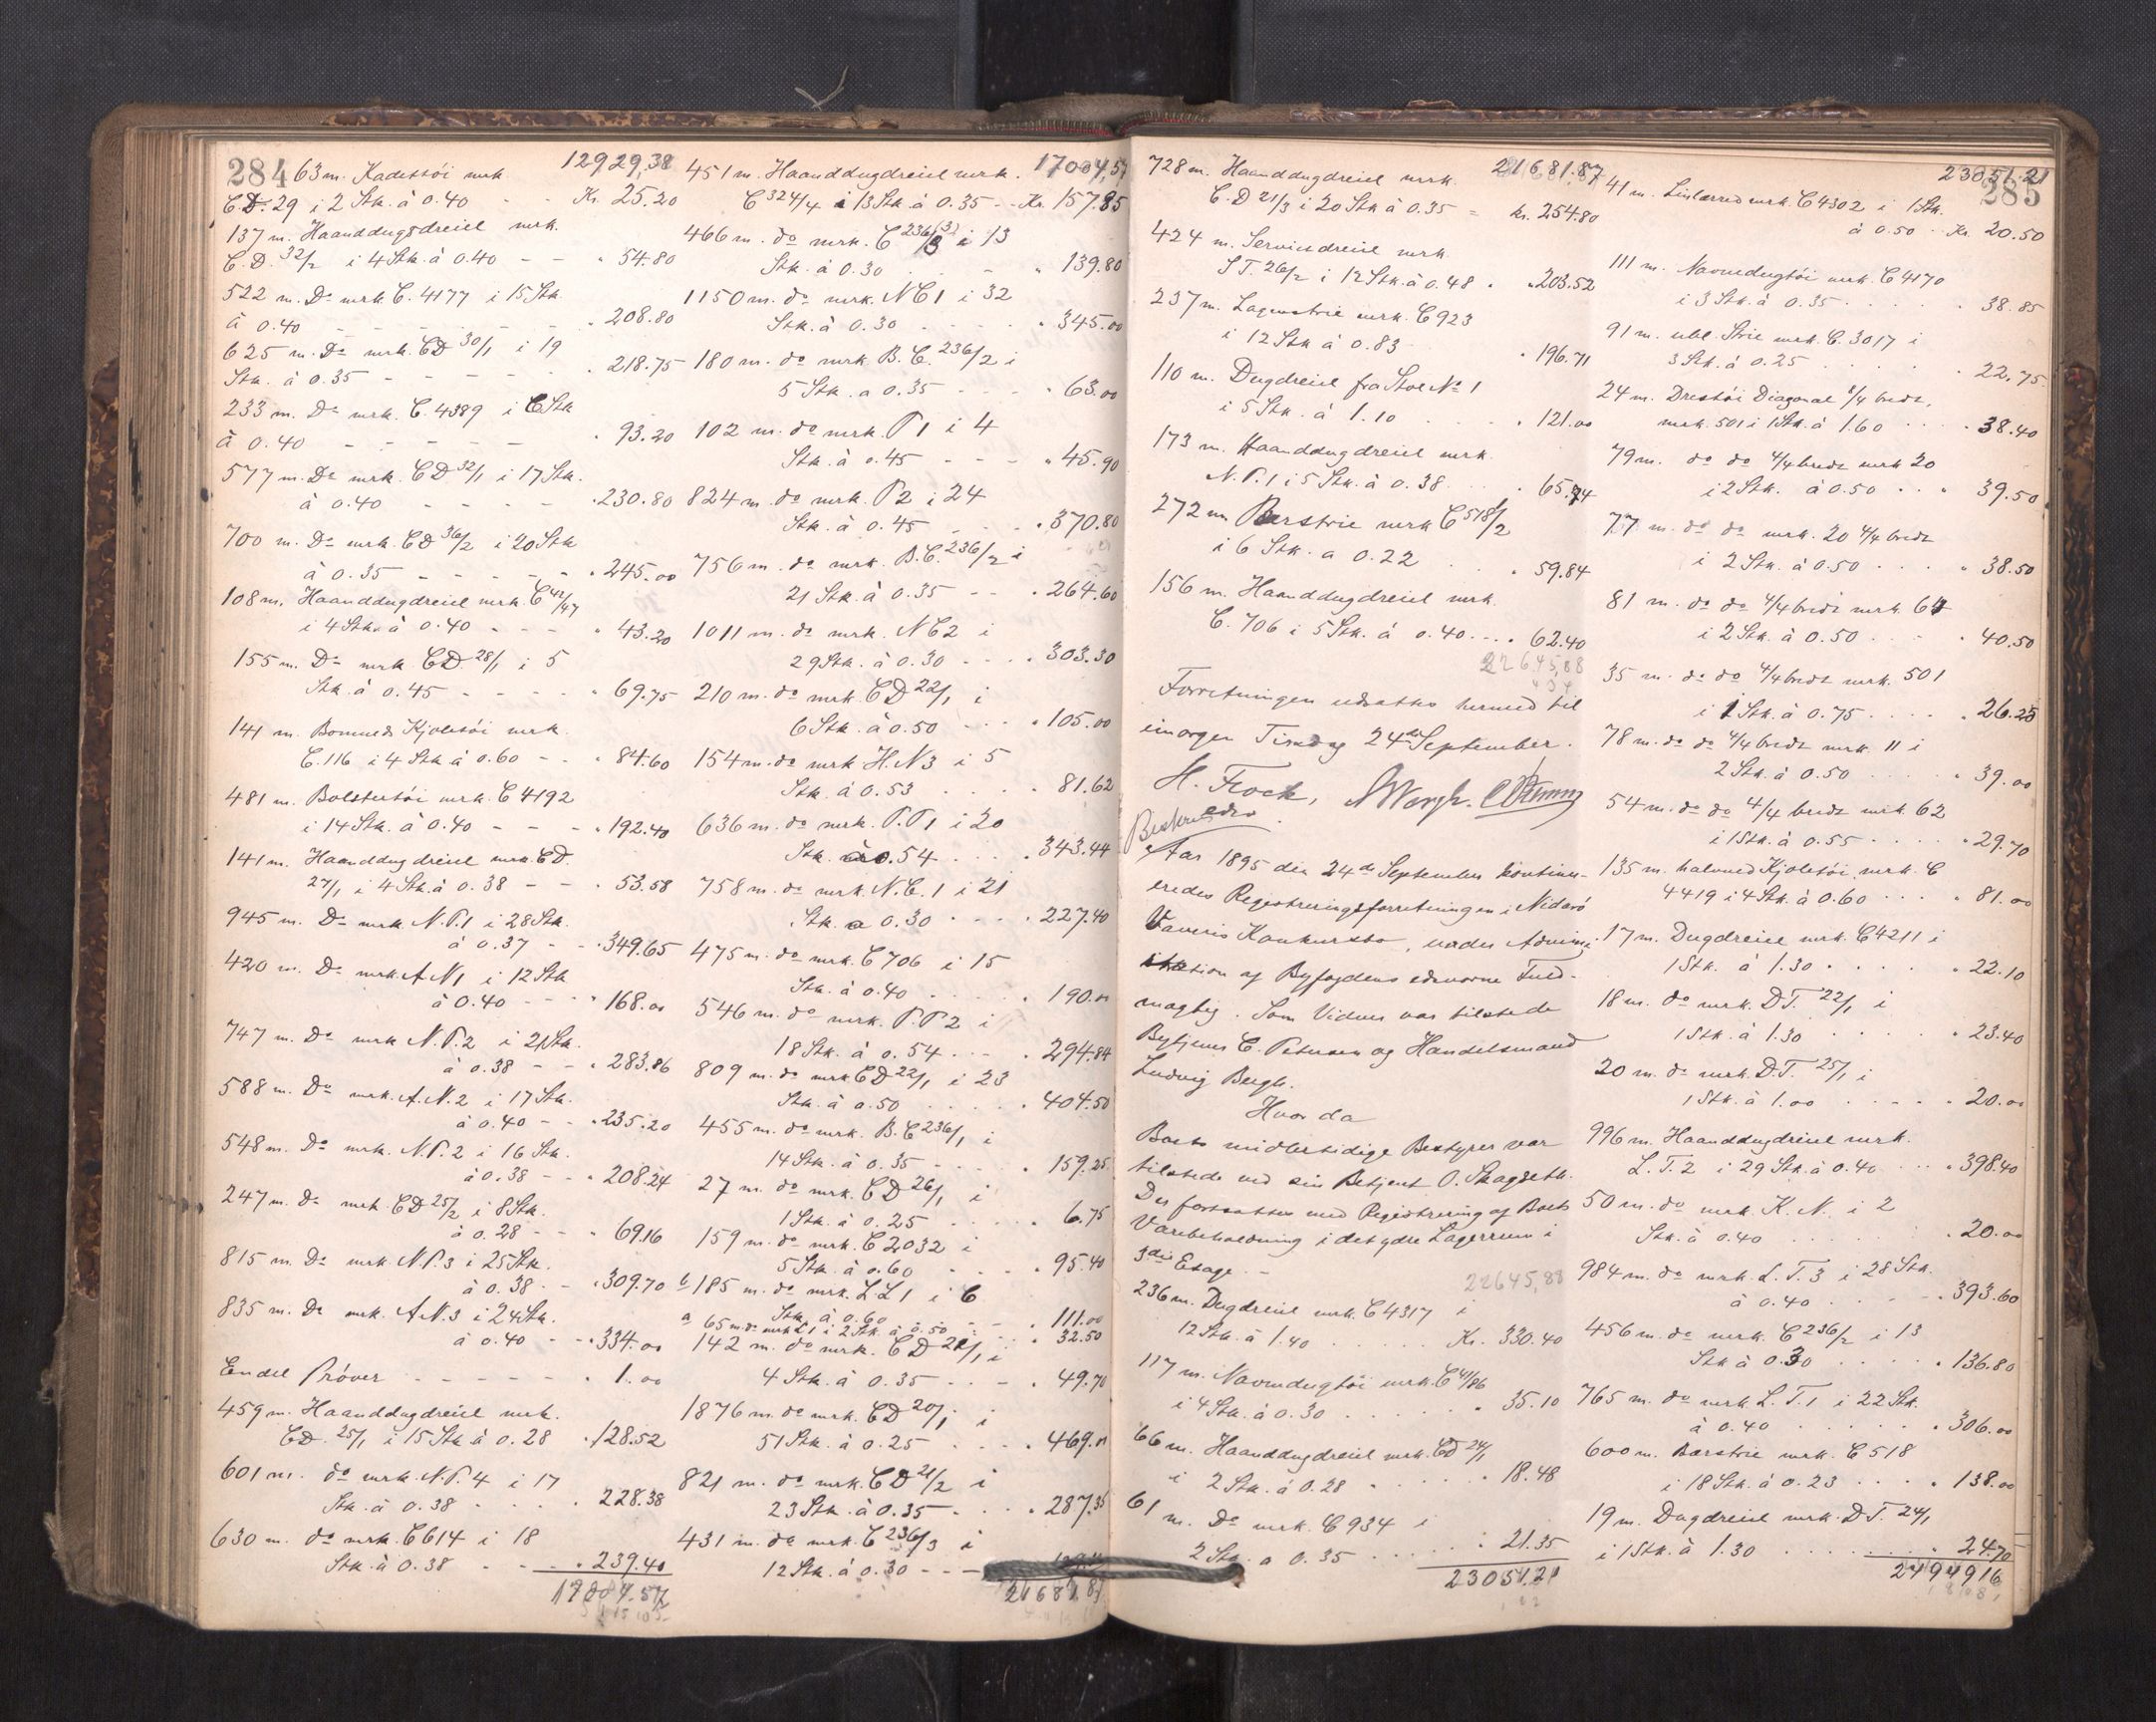 284
12929,38
63 m. Kadettöi mrk.
C.D. 29 i 2 Stk. à 0.40 - - Kr. 25.20
137 m. Haanddugsdreiel mrk.
C.D. 32/2 i 4 Stk. à 0.40 - - " 54.80
522 m. Do mrk. C. 4177 i 15 Stk.
à 0.40 - - - - - " 208.80
625 m. Do mrk. CD 30/1 i 19
Stk. à 0.35 - - - - - " 218.75
233 m. Do mrk. C. 4389 i 6 Stk
à 0.40 - - - - - " 93.20
577 m. Do mrk. CD 32/1 i 17 Stk.
à 0.40 - - - - " 230.80
700 m. Do mrk. CD 36/2 i 20 Stk
à 0.35 - - - - - " 245.00
108 m. Haanddugdreiel mrk. C 41/47
i 4 Stk. à 0.40 - - - " 43.20
155 m. Do mrk CD 28/1 i 5
Stk. à 0.45 - - - - " 69.75
141 m. Bomuads Kjoletöi mrk.
C. 116 i 4 Stk à 0.60 - - " 84.60
481 m. Bolstertöi mrk. C 4192
i 14 Stk. à 0.40 - - - " 192.40
141 m. Haanddugdreiel mrk. CD.
27/1 i 4 Stk. à 0.38 - - " 53.58
945 m. Do mrk N.P.1 i 28 Stk.
à 0.37 - - " 349.65
420 m. Do mrk. A N1 i 12 Stk
à 0.40 - - - " 168.00
747 m. Do mrk N.P.2 i 21 Stk.
à 0.38 - - " 283.86
588 m. Do mrk. A.N.2 i 17 Stk.
à 0.40 - - " 235.20
548 m. Do mrk. N.P.2 i 16 Stk.
à 0.38 - - " 208.24
247 m. Do mrk. CD 25/2 i 8 Stk.
à 0.28 - - " 69.16
815 m. Do mrk. N.P.3 i 25 Stk.
à 0.38 - - " 309.70
835 m. Do mrk. A.N.3 i 24 Stk.
à 0.40 - - " 334.00
Endel Pröver - - - - - " 1.00
459 m. Haanddugdreiel mrk.
CD. 25/1 i 15 Stk à 0.28 " 128.52
601 m. do mrk. N.P. 4 i 17
Stk. à 0.38 - - - " 228.38
630 m. do mrk. C 614 i 18
Stk. à 0.38 - - - " 239.40
17004.57
17004,57
451 m. Haanddugdreiel mrk.
C 324/4 i 13 Stk à 0.35 - - Kr. 157.85
466 m. do mrk. C 236/3 i 13
Stk. à 0.30 - - " 139.80
1150 m. do mrk. NC1 i 32
Stk. à 0.30 - - - - " 345.00
180 m. do mrk B.C. 236/2 i
5 Stk. a 0.35 - - " 63.00
102 m. do mrk. P1 i 4
Stk. à 0.45 - - - " 45.90
824 m. do mrk. P2 i 24
Stk. à 0.45 - - - " 370.80
756 m. do mrk. B.C. 236/2 i
21 Stk. à 0.35 - - " 264.60
1011 m. do mrk. NC2 i
29 Stk. à 0.30 - - - " 303.30
210 m. do mrk CD 22/1 i
6 Stk. à 0.50 - - - " 105.00
154 m. do mrk H.N3 i 5
Stk. à 0.53 . . . . " 81.62
636 m. do mrk. P.P1 i 20
Stk. à 0.54 . . . . " 343.44
758 m. do mrk. N.C.1 i 21
Stk. a 0.30 . . . . " 227.40
475 m. do mrk. C 706 i 15
Stk. à 0.40 . . . . " 190.00
546 m. do mrk. P.P2 i
18 Stk. à 0.54 . . . " 294.84
809 m. do mrk CD 22/1 i 23
Stk. à 0.50 . . . . " 404.50
455 m. do mrk. B.C 236/1 i
14 Stk. à 0.35 - . . " 159.25
27 m. do mrk. CD 26/1 i
1 Stk. à 0.25 . . . . " 6.75
159 m. do mrk. C 2032 i
5 Stk. à 0.60 . . . " 95.40
b 185 m. do mrk. LL1 i 6
Stk. à 0.60 - - . " 111.00
a 65 m. do mrk L1 i 2 Stk. à 0.50 - . . " 32.50
142 m. do mrk. CD 21/1 i
4 Stk. à 0.35 - - . " 49.70
1876 m. do mrk. CD 20/1 i
51 Stk. à 0.25 . . . . " 469.00
821 m. do mrk. CD 21/2 i
23 Stk. à 0.35 - . . . " 287.35
431 m. do mrk. C 236/3 i
12 Stk. à 0.30 - - -
21681,87
285
21681.87
728 m. Haanddugdreiel mrk.
C.D 21/3 i 20 Stk à 0.35 - Kr. 254.80
424 m. Servietdreiel mrk.
S T. 26/2 i 12 Stk. à 0.48 . " 203.52
237 m. Lagenstrie mrk. C 923
i 12 Stk à 0.83 " 196.71
110 m. Dugdreiel fra Stol No 1
i 5 Stk. à 1.10 . . . . " 121.00
173 m. Haanddugdreiel mrk.
N.P.1 i 5 Stk. à 0.38 . . . " 65.74
272 m Bærstrie mrk C 518/2
i 6 Stk. a 0.22 . . . " 59.84
156 m. Haanddugdreiel mrk.
C. 706 i 5 Stk. à 0.40 . . . " 62.40
22645,88
Forretningen udsattes hermed til
imorgen Tirsdag 24de September.
H. Flock,
Aar 1895 den 24de September kontinu-
eredes Registreringsforretningen i Nidarö
Væveris Konkursbo, under Admini-
stration af Byfogdens edsvorne Fuld-
mægtig. Som Vidner var tilstede
Bytjener C. Petersen og Handelsmand
Ludvig Bergh.
Hvor da
Boets midlertidige Bestyrer var
tilstede ved sin Betjent O. Skagseth.
Der fortsattes med Registrering af Boets
Varebeholdning i det ydre Lagerrum i
3die Etage. -
22645,88
236 m. Dugdreiel mrk. C 4317 i
12 Stk. à 1.40 . . . . . Kr. 330.40
117 m. Navnedugtöi mrk. C 41/86
i 4 Stk. à 0.30 . . . . . " 35.10
66 m. Haanddugdreiel mrk. CD 24/1
i 2 Stk. à 0.28 . . . . " 18.48
61 m. Do mrk. C 934 i
2 Stk. a 0.35 . . . . . " 21.35
23051.21
23051.21
41 m. Linlærred mrk. C 4302 i 1 Stk.
à 0.50 . Kr. 20.50
111 m. Navnedugtöi mrk. C 4170
i 3 Stk. à 0.35 . . . . " 38.85
91 m. ubl. Strie mrk. C. 3017 i
3 Stk. à 0.25 . . . . . " 22.75
24 m. Drestöi Diagonal 8/4 bredt,
mrk. 501 i 1 Stk. à 1.60 . . . " 38.40
79 m. do do 4/4 bredt mrk 20
i 2 Stk. à 0.50 . . " 39.50
77 m. do do mrk. 20 4/4 bredt
i 2 Stk. à 0.50 . . . " 38.50
81 m. do do 4/4 bredt mrk. 64
i 2 Stk. à 0.50 . . . . " 40.50
35 m. do do 4/4 bredt mrk. 501
i 1 Stk. à 0.75 . . . . " 26.25
78 m. do do 4/4 bredt mrk. 11 i
2 Stk. à 0.50 . . . . . " 39.00
54 m. do do 4/4 bredt mrk 62
i 1 Stk. à 0.55 . . . . . " 29.70
135 m. halvuld Kjoletöi, mrk. C
4419 i 4 Stk. à 0.60 . . . " 81.00
17 m. Dugdreiel mrk. C 4211 i
1 Stk. à 1.30 . . . . . " 22.10
18 m. do mrk. DT. 22/1 i
1 Stk. à 1.30 . . . . . " 23.40
20 m. do mrk. D.T. 25/1 i
1 Stk. à 1.00 . . . . . " 20.00
996 m. Haanddugdreiel mrk.
L.T.2 i 29 Stk. à 0.40 . . . " 398.40
50 m. do mrk. K.N. i 2
Stk. à 0.40 . . . . . " 20.00
984 m. do mrk. L.T.3 i 28 Stk.
à 0.40 . . . . - " 393.60
456 m. do mrk. C 236/2 i 13
Stk à 0.30 . . . . . " 136.80
765 m. do mrk L.T.1 i 22 Stk.
à 0.40 . . . . . " 306.00
600 m. Bærstrie mrk. C 518
i 18 Stk. à 0.23 . . . " 138.00
19 m. Dugdreiel mrk. D T. 24/1
i 1 Stk. à 1.30 . . . . . " 24.70
2494916